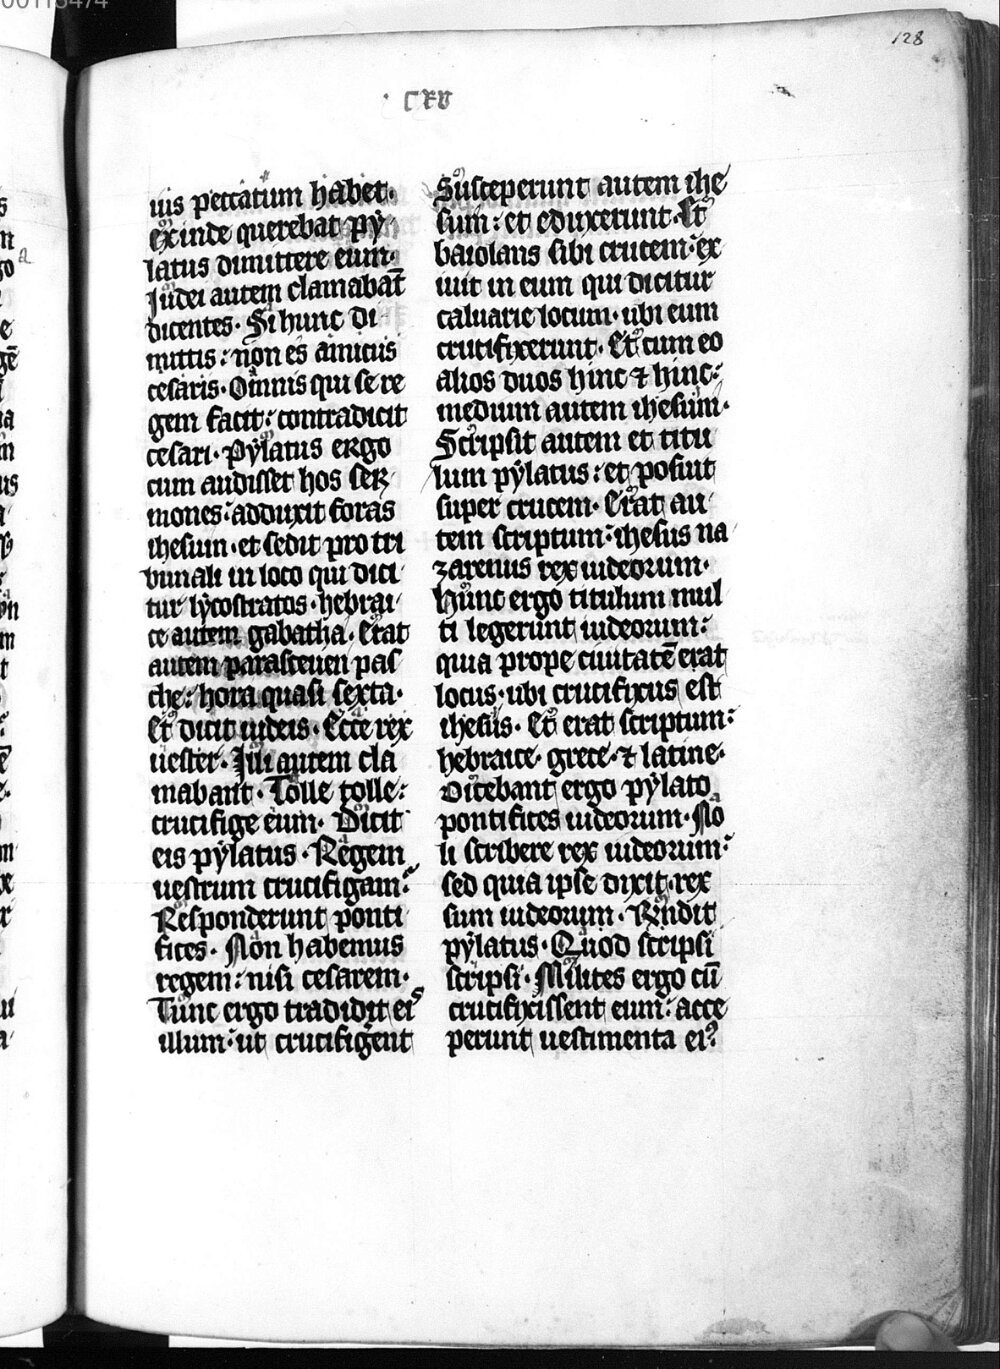 128
· CXV
ius peccatum habet·
Exinde querebat py
latus dimittere eum·
Judei autem clamabāt
dicentes· Si hunc di
mittis: non es amicus
cesaris· Omnis qui se re
gem facit: contradicit
cesari· Pylatus ergo
cum audisset hos ser
mones: adduxit foras
ihesum· et sedit pro tri
bunali in loco qui dici
tur lycostratos· hebrai
ce autem gabatha· Erat
autem parasceuen pas
che: hora quasi sexta·
Et dicit iudeis· Ecce rex
uester· Illi autem cla
mabant· Tolle tolle:
crucifige eum· Dicit
eis pylatus· Regem
uestrum crucifigam?
Responderunt ponti
fices· Non habemus
regem: nisi cesarem·
Tunc ergo tradidit eis
illum: ut crucifigerent
Susceperunt autem ihe
sum: et eduxerunt· Et
baiolans sibi crucem: ex
iuit in eum qui dicitur
caluarie locum· ubi eum
crucifixerunt· Et cum eo
alios duos hinc ⁊ hinc:
medium autem ihesum·
Scripsit autem et titu
lum pylatus: et posuit
super crucem· Erat au
tem scriptum: ihesus na
zarenus rex iudeorum·
Hunc ergo titulum mul
ti legerunt iudeorum:
quia prope ciuitatē erat
locus· ubi crucifixus est
ihesus· Et erat scriptum:
hebraice· grece· ⁊ latine·
Dicebant ergo pylato
pontifices iudeorum· No
li scribere rex iudeorum:
sed quia ipse dixit· rex
sum iudeorum· Rn̄dit
pylatus· Quod scripsi
scripsi· Milites ergo cū
crucifixissent eum: acce
perunt uestimenta eiꝰ